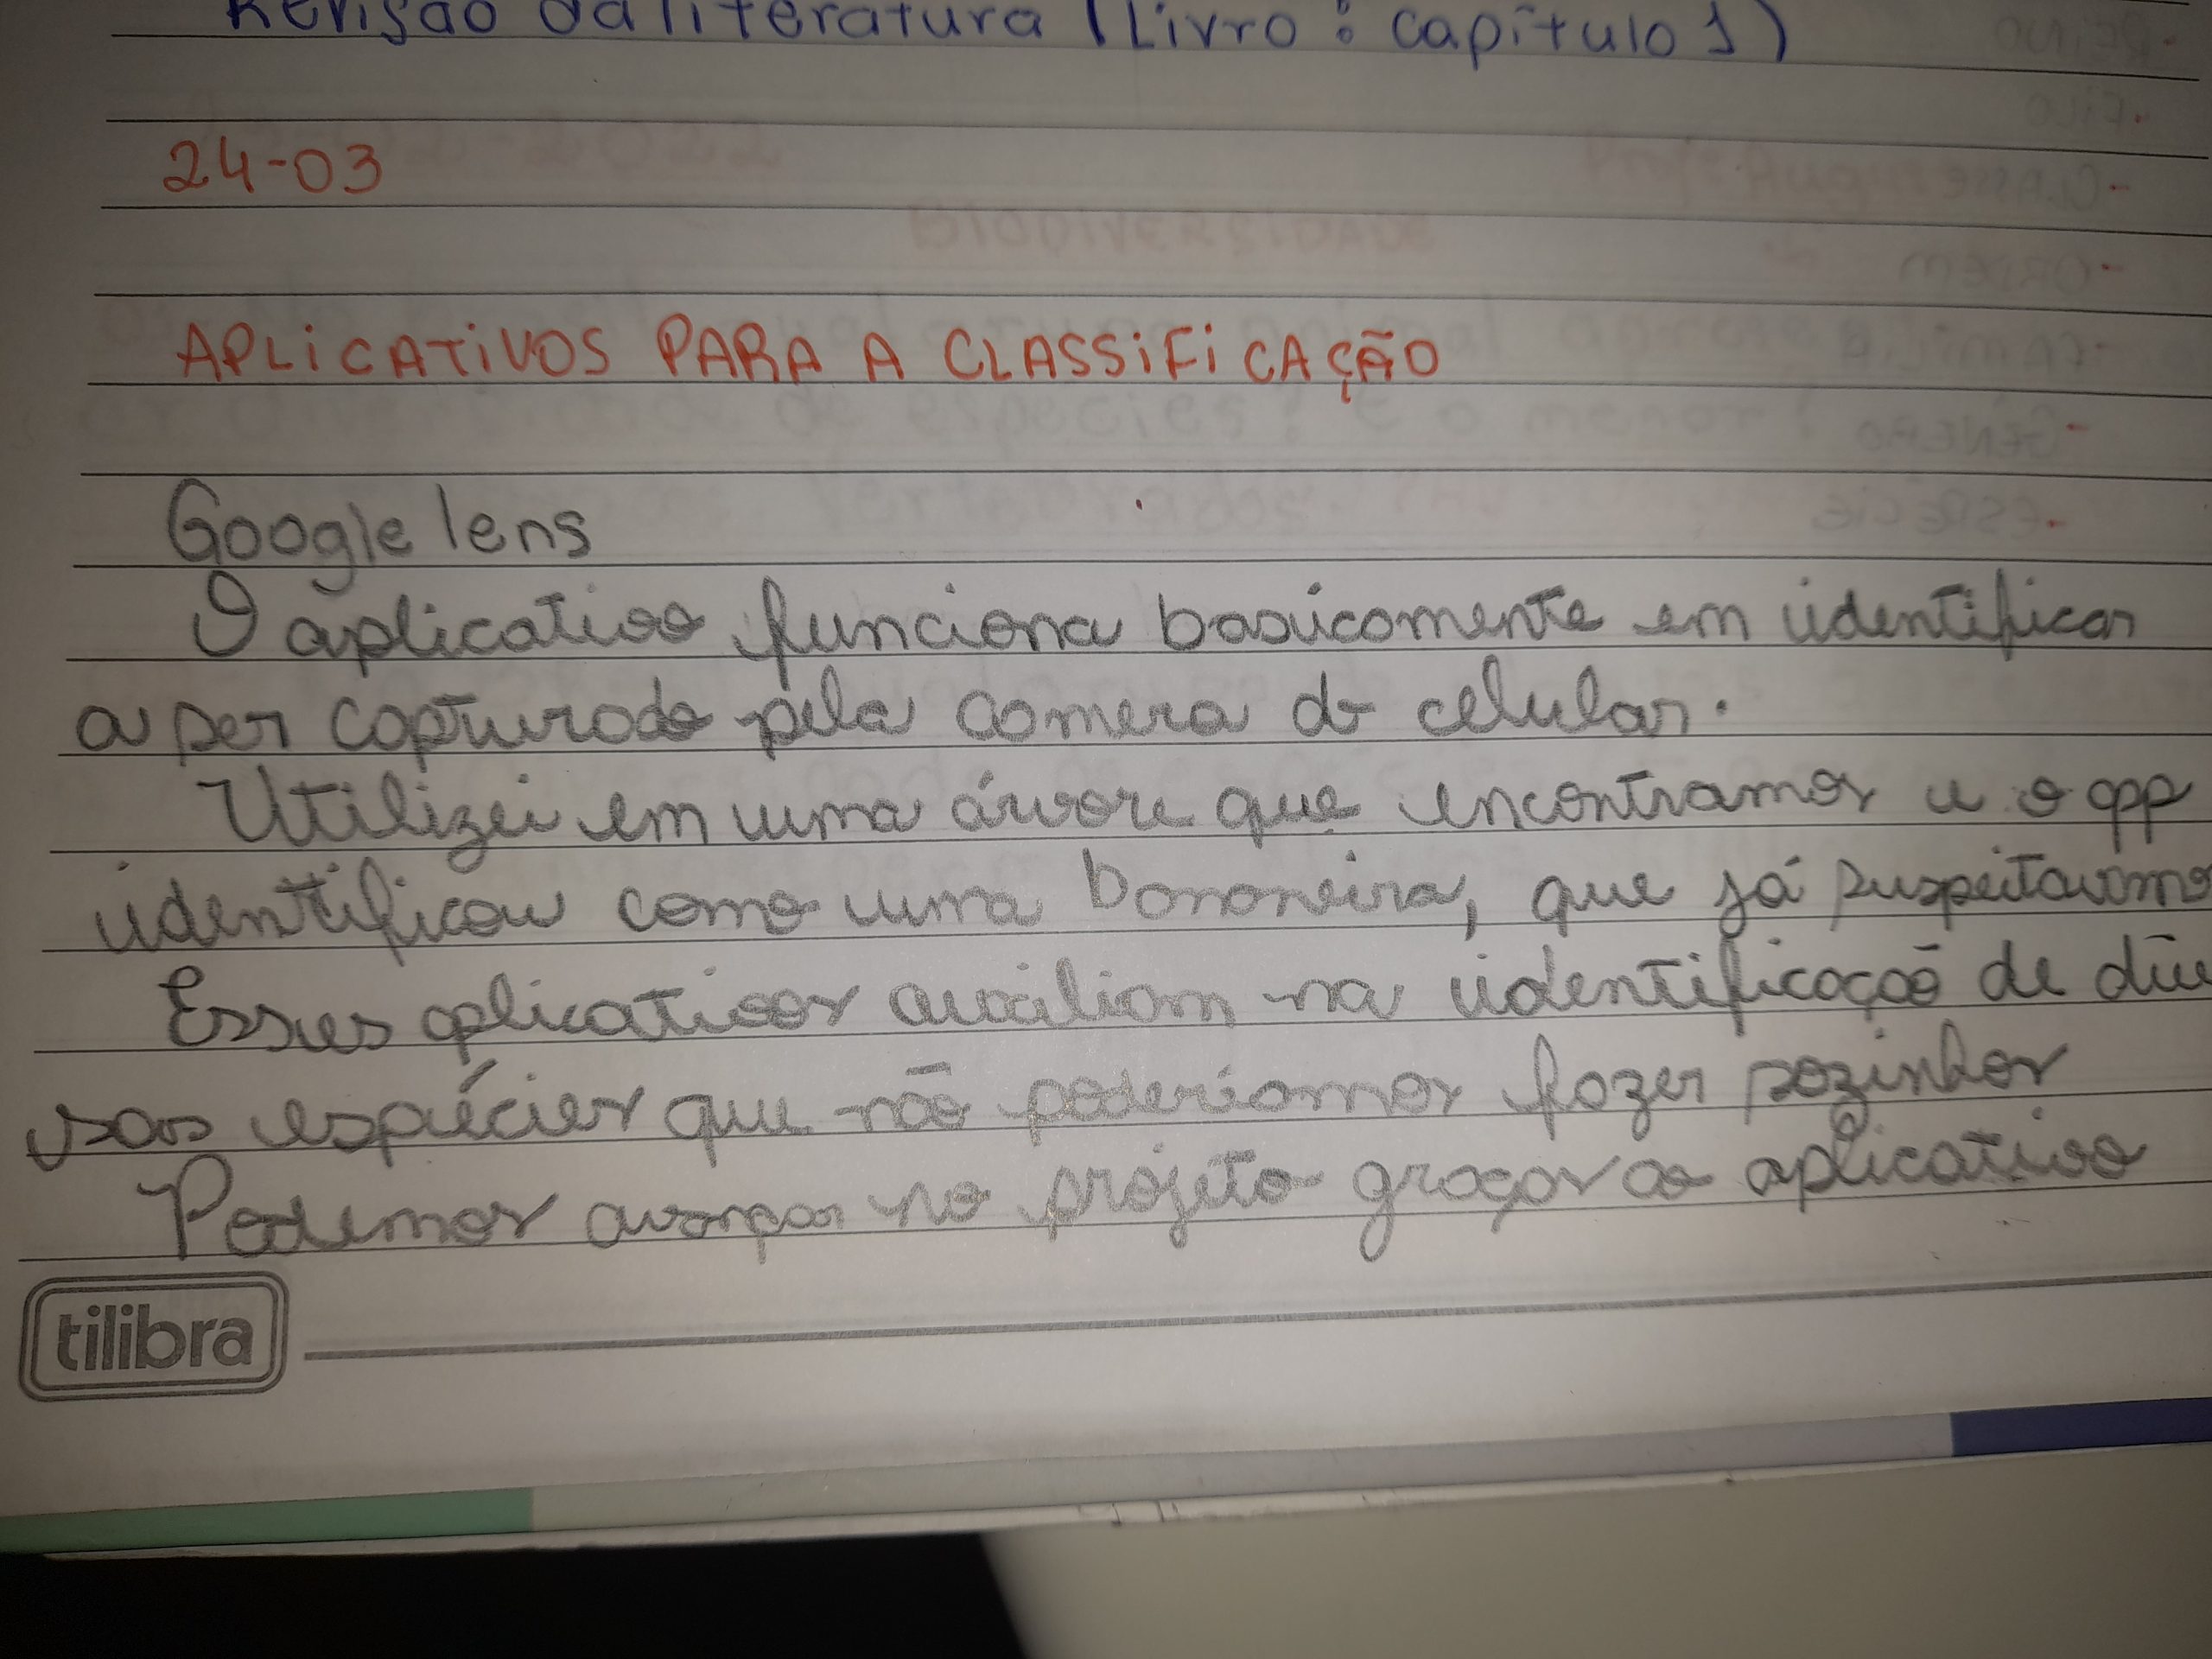 Revisão da literatura (Livro : capítulo 1)
24-03
APLICATIVOS PARA A CLASSIFICAÇÃO
Google lens
O aplicativo funciona basicamente em identificar
o ser capturado pela camera do celular.
Utilizei em uma árvore que encontramos e o app
identificou como uma bananeira, que já suspeitavamo
Esses aplicativos auxiliam na identificação de div
sas espécies que não poderíamos fazer sozinhos
Podemos avançar no projeto graças ao aplicativo
tilibra